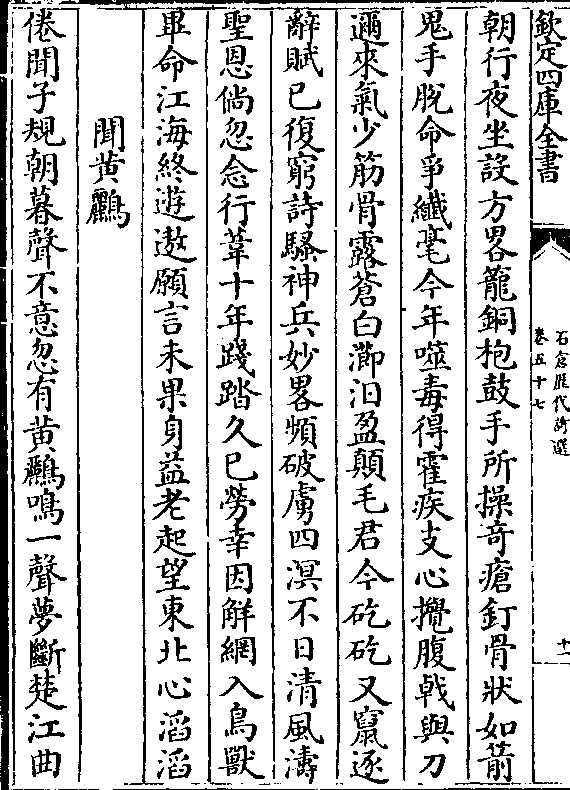 欽定四庫全書
石倉歷代詩選
卷五十七
十一
朝行夜坐設方畧籠銅枹鼓手所操奇瘡釘骨狀如箭
鬼手脫命爭纖毫今年噬毒得霍疾支心攪腹㦸與刀
邇來氣少筋骨露蒼白瀄汩盈顛毛君今矻矻又竄逐
辭賦已復窮詩騷神兵妙畧頻破虜四溟不日清風濤
聖恩倘忽念行葦十年踐踏久已勞幸因解網入鳥獸
畢命江海終遊遨願言未果身益老起望東北心滔滔
聞黃鸝
倦聞子規朝暮聲不意忽有黃鸝鳴一聲夢斷楚江曲